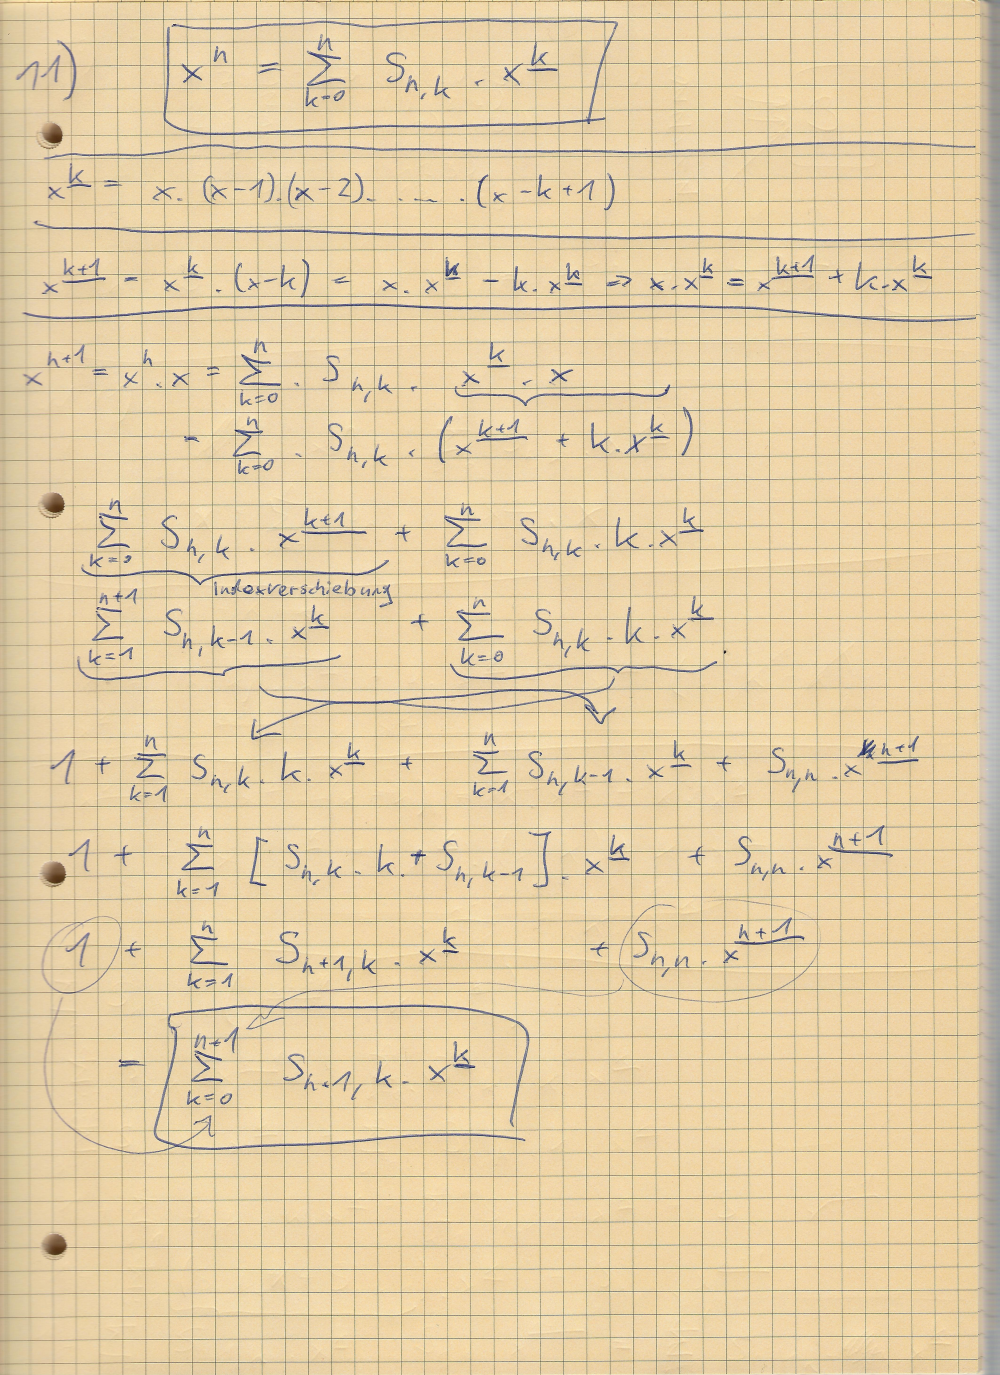 11) x^n = ∑_{k=0}^{n} S_{n,k} · x^{\underline{k}}
x^{\underline{k}} = x · (x-1) · (x-2) · .... · (x-k+1)
x^{\underline{k+1}} = x^{\underline{k}} · (x-k) = x · x^{\underline{k}} - k · x^{\underline{k}} ⇒ x · x^{\underline{k}} = x^{\underline{k+1}} + k · x^{\underline{k}}
x^{n+1} = x^n · x = ∑_{k=0}^{n} · S_{n,k} · x^{\underline{k}} · x
= ∑_{k=0}^{n} · S_{n,k} · (x^{\underline{k+1}} + k · x^{\underline{k}})
∑_{k=0}^{n} S_{n,k} · x^{\underline{k+1}} + ∑_{k=0}^{n} S_{n,k} · k · x^{\underline{k}}
Indexverschiebung
∑_{k=1}^{n+1} S_{n,k-1} · x^{\underline{k}} + ∑_{k=0}^{n} S_{n,k} · k · x^{\underline{k}}
1 + ∑_{k=1}^{n} S_{n,k} · k · x^{\underline{k}} + ∑_{k=1}^{n} S_{n,k-1} · x^{\underline{k}} + S_{n,n} · x^{\underline{n+1}}
1 + ∑_{k=1}^{n} [S_{n,k} · k · + S_{n,k-1}] · x^{\underline{k}} + S_{n,n} · x^{\underline{n+1}}
1 + ∑_{k=1}^{n} S_{n+1,k} · x^{\underline{k}} + S_{n,n} · x^{\underline{n+1}}
= ∑_{k=0}^{n+1} S_{n+1,k} · x^{\underline{k}}